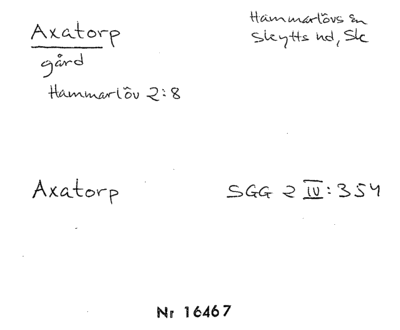 Axatorp
gård
Hammarlöv 2:8
Hammarlövs sn
Skytts hd, Sk
Axatorp
SGG 2 IV:354
Nr 16467